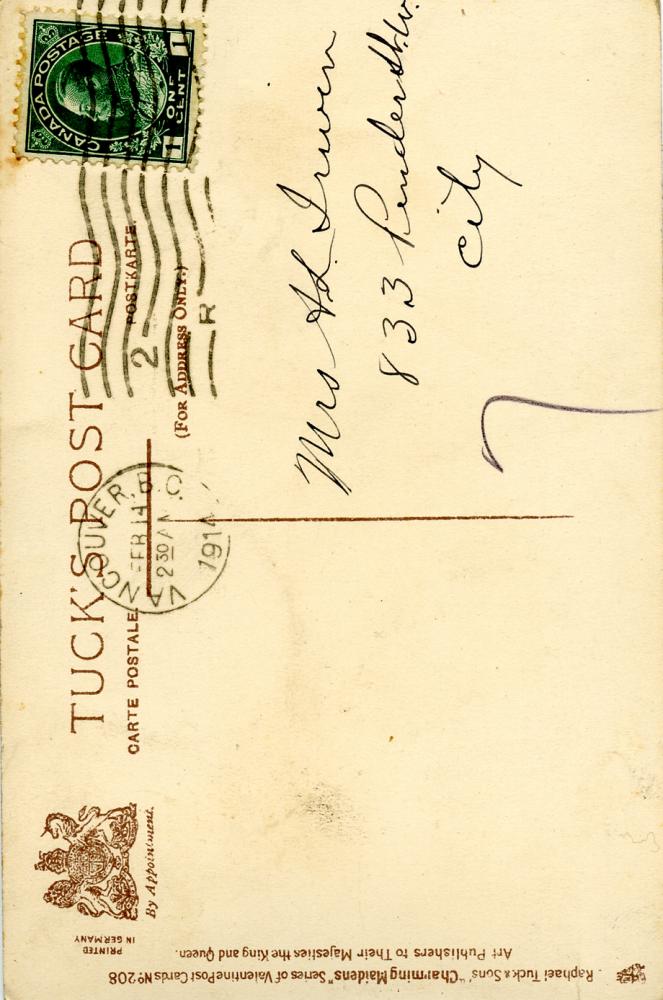 CANADA POSTAGE
1 ONE CENT 1
TUCK'S POST CARD
CARTE POSTALE. POSTKARTE.
(FOR ADDRESS ONLY.)
By Appointment.
PRINTED
IN GERMANY
VANCOUVER. B.C.
FEB 14
2 30 A
1914
2
R
Mrs Irwin
833 Pender St. W.
City
Raphael Tuck & Sons' "Charming Maidens" Series of Valentine Post Cards Nº 208
Art Publishers to Their Majesties the King and Queen.